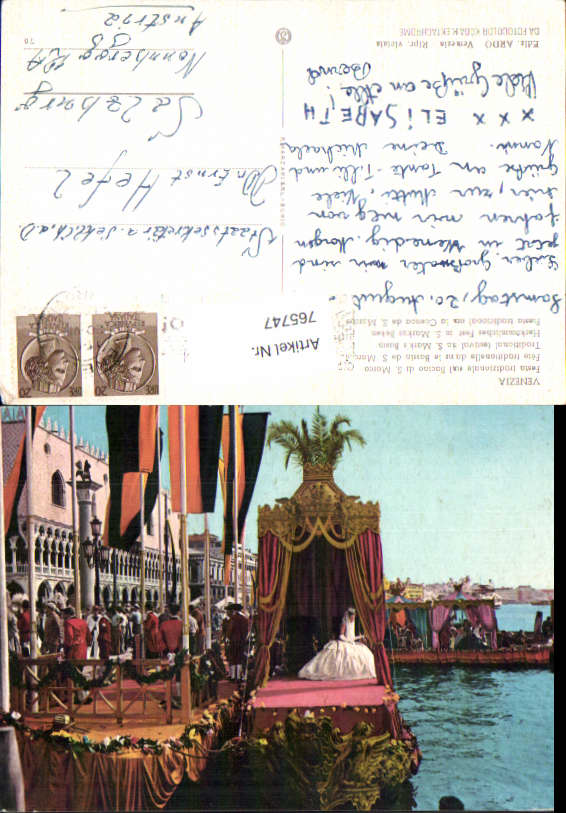 VENEZIA
Festa tradizionale sul Bacino di S. Marco
Fête traditionelle dans le Bassin da S. Marco
Traditional festival on S. Mark's Basin
Herkömmliches Fest im S. Markus Beken
Fiesta tradicional en la Cuenca da S. Marco
Samstag, 20. August
Lieber Großvater wir sind
jetzt in Venedig. Morgen
fahren wir weg von
hier, zur Mutti, Viele
Grüße an Tante Tilli und
Nanni. Deine Michaela
x x x ELISABETH
Viele Grüße an alle!
Bernd
Ediz. ARDO Venezia Ripr. vietata
DA FOTOCOLOR KODAK EKTACHROME
Artikel Nr.
765747
Staatssekretär a.D.
Dr. Ernst Hefel
Salzburg
Nonnberg
Austria